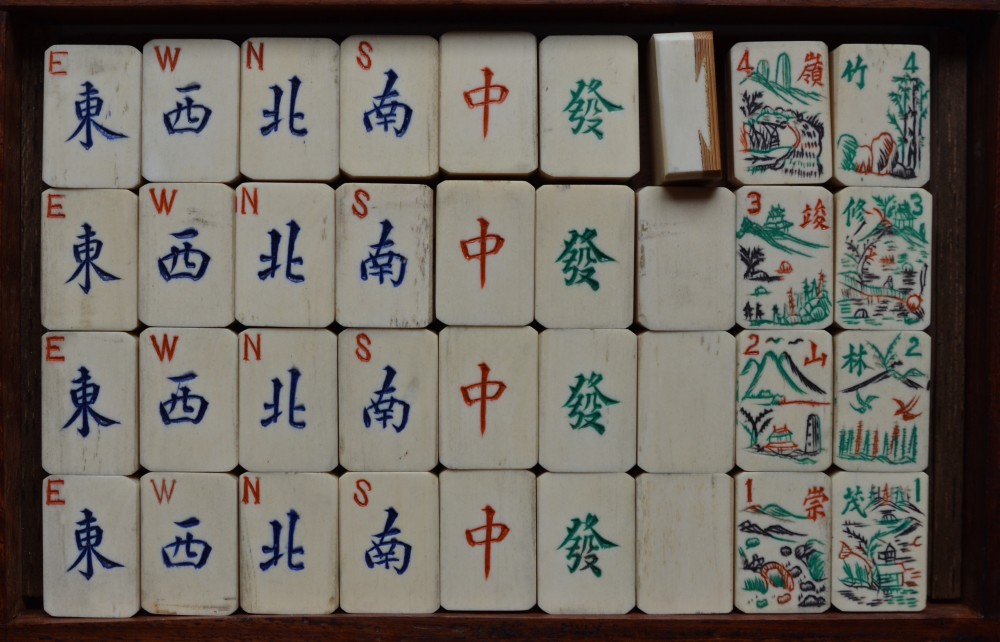 E 東 W 西 N 北 S 南 中 發 4 嶺 竹 4
E 東 W 西 N 北 S 南 中 發 3 竣 修 3
E 東 W 西 N 北 S 南 中 發 2 山 林 2
E 東 W 西 N 北 S 南 中 發 1 崇 茂 1